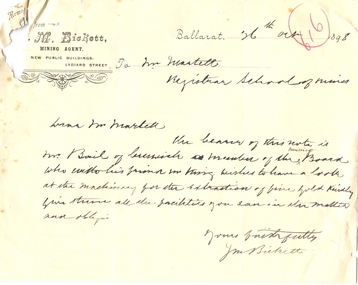 From
M. Bickett,
MINING AGENT,
NEW PUBLIC BUILDINGS,
LYDIARD STREET
Ballarat, 26th Oct 1898
616
To Mr Martell
Registrar School of Mines
Dear Mr Martell
The bearer of this note is
Mr. Bail of a member of the Mining Board
who with his friend Mr King wishes to have a look
at the machinery for the extraction of fine gold Kindly
give them all the facilities you can in the matter
and oblige
Yours faithfully
Jm Bickett